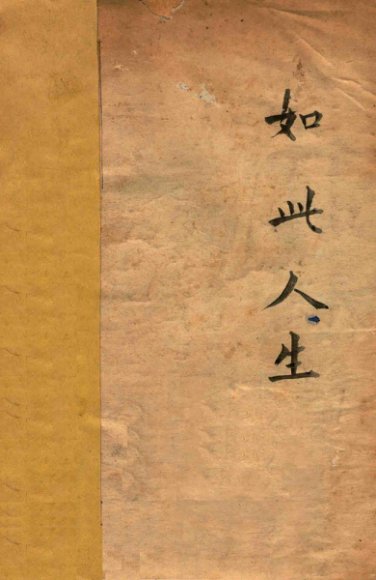 如此人生